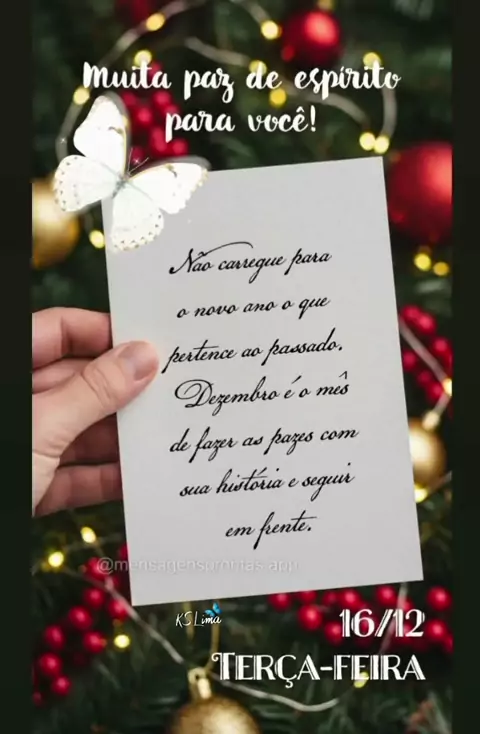 Muita paz de espírito
para você!
Não carregue para
o novo ano o que
pertence ao passado.
Dezembro é o mês
de fazer as pazes com
sua história e seguir
em frente.
KS Lima
16/12
TERÇA-FEIRA